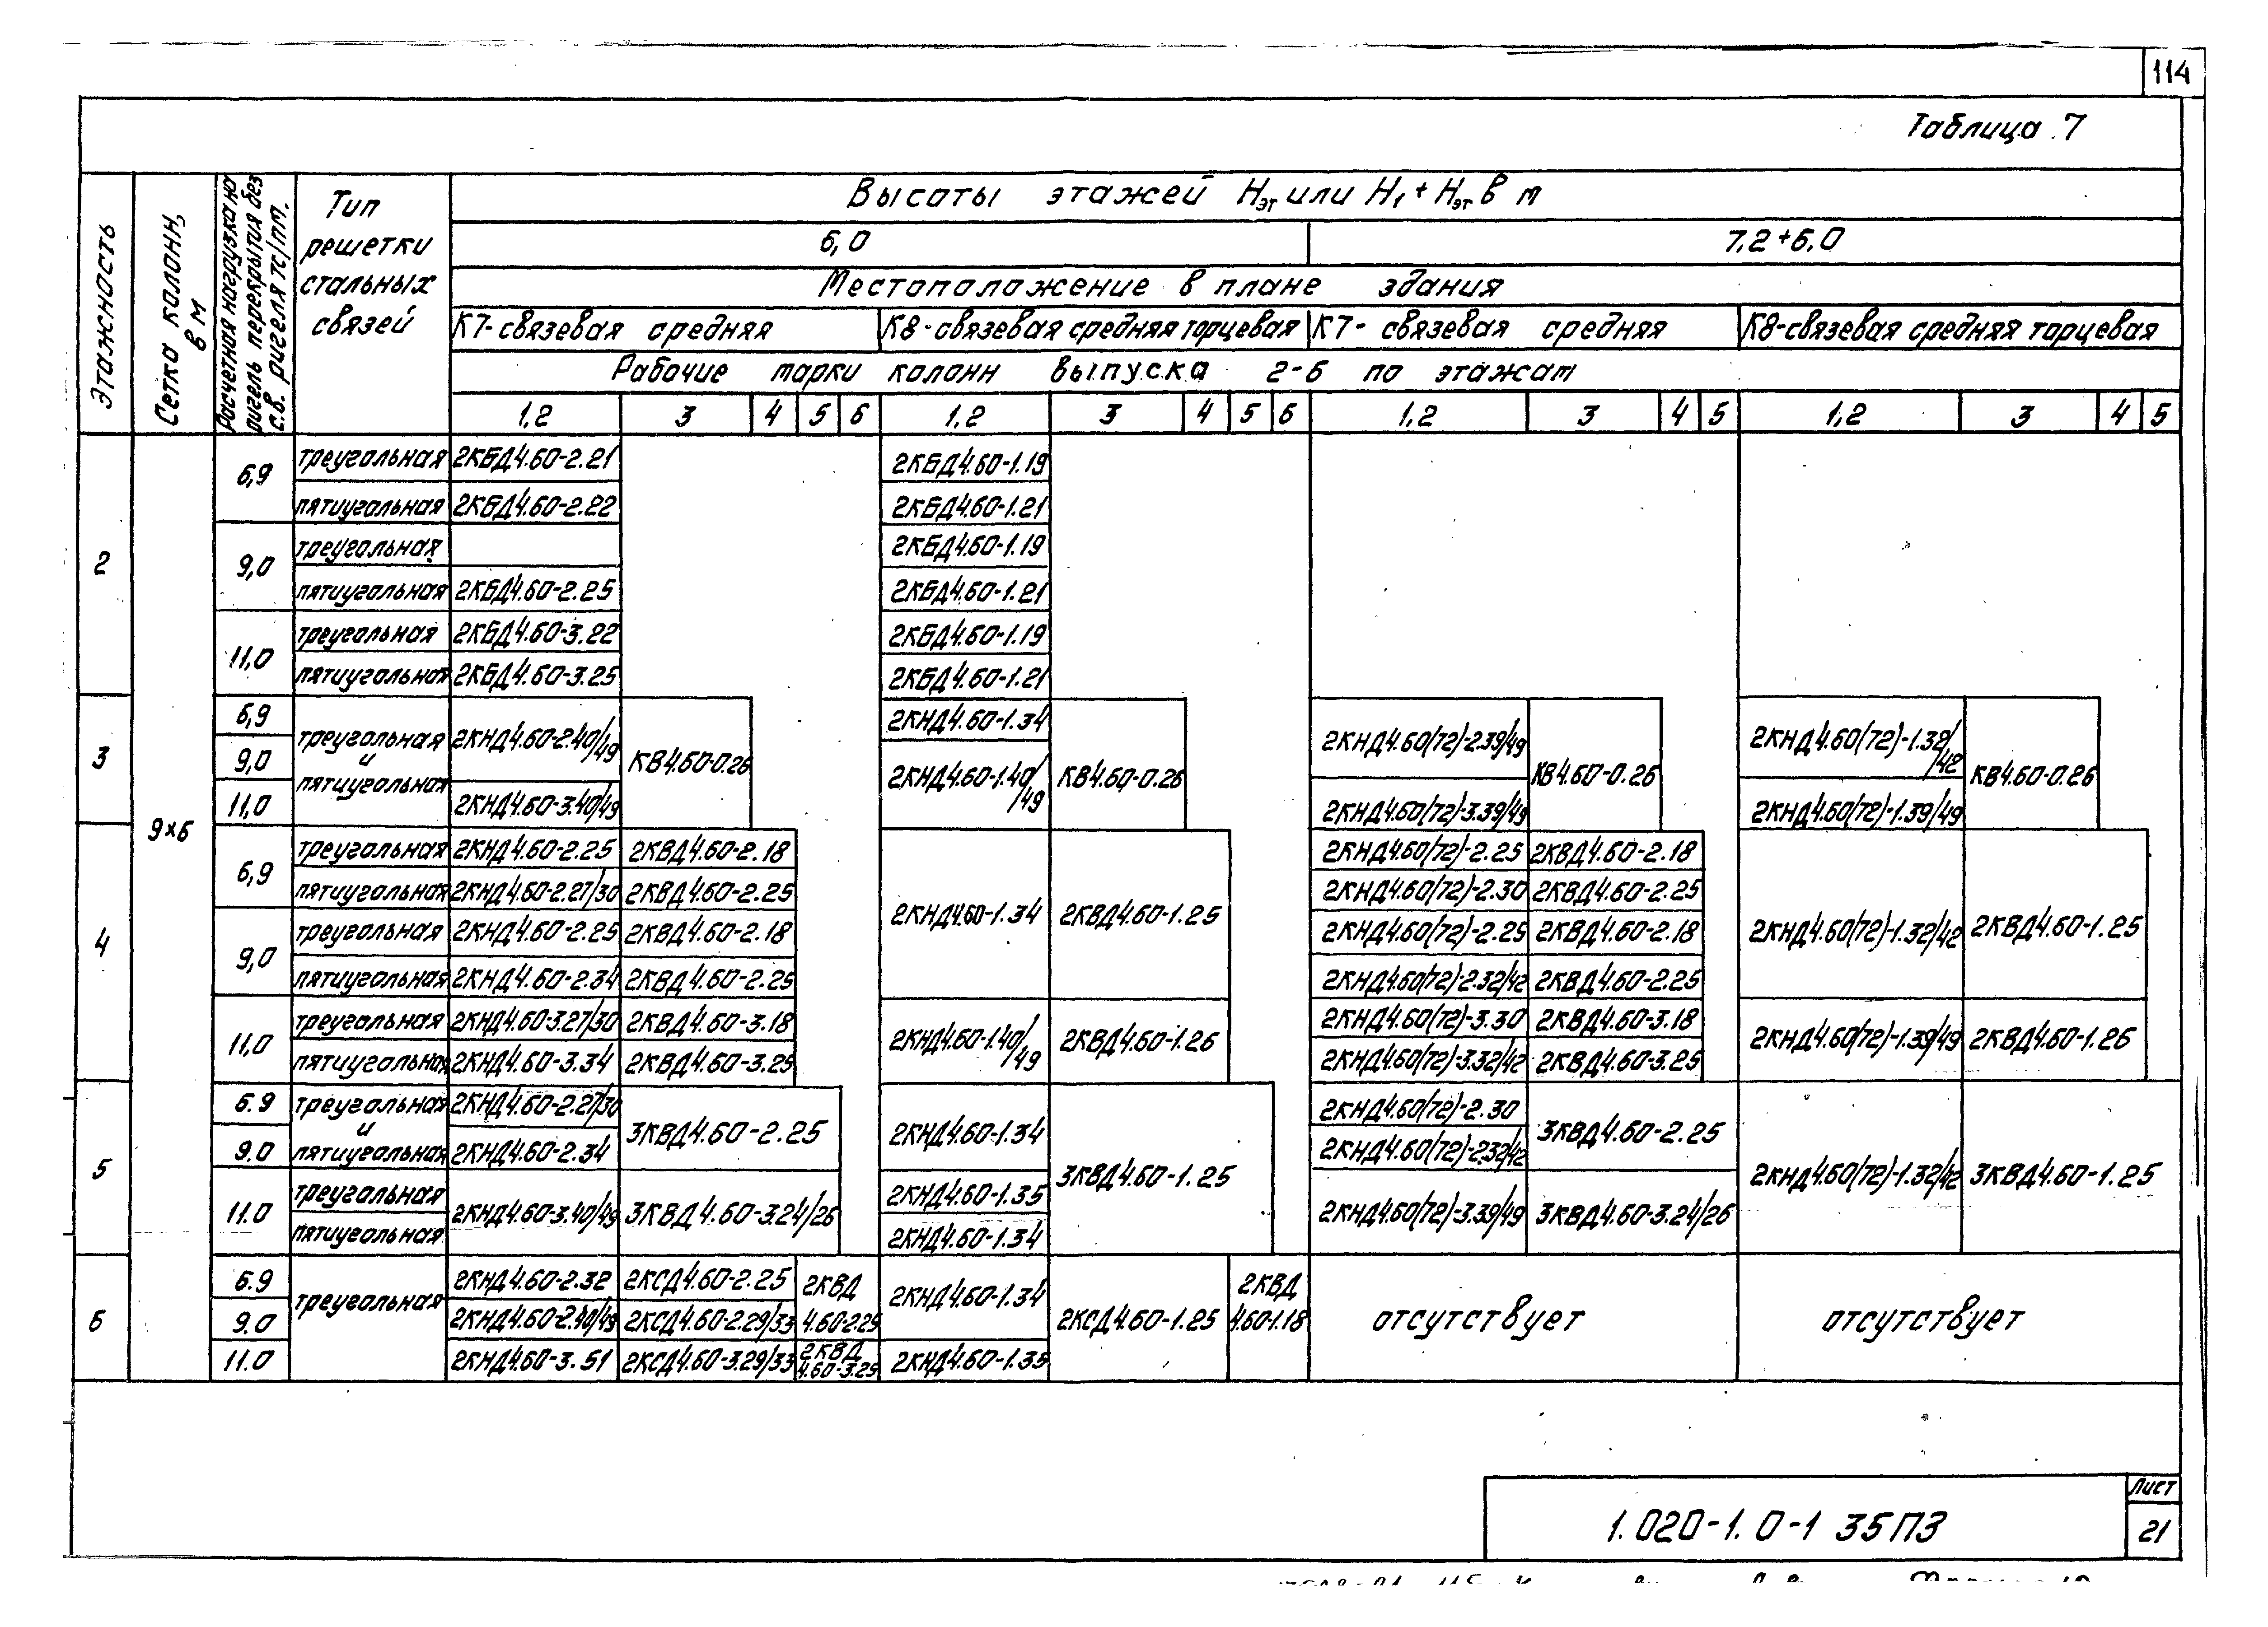 114
Таблица 7
Этажность
Сетка колонн, в м
Расчетная нагрузка на ригель перекрытия без с.в. ригеля тс/пм.
Тип решетки стальных связей
Высоты этажей Нэт или Н1+Нэт в м
6,0 7.2+6.0
Местоположение в плане здания
К7-связевая средняя К8-связевая средняя торцевая К7-связевая средняя К8-связевая средняя торцевая
Рабочие марки колонн выпуска 2-6 по этажам
1,2 3 4 5 6 1,2 3 4 5 6 1,2 3 4 5 1,2 3 4 5
2 9×6 6,9 треугольная 2КБД4.60-2.21 2КБД4.60-1.19
пятиугольная 2КБД4.60-2.22 2КБД4.60-1.21
9,0 треугольная 2КБД4.60-1.19
пятиугольная 2КБД4.60-2.25 2КБД4.60-1.21
11,0 треугольная 2КБД4.60-3.22 2КБД4.60-1.19
пятиугольная 2КБД4.60-3.25 2КБД4.60-1.21
3 6,9 треугольная и пятиугольная 2КНД4.60-2.40/49 КВ4.60-0.26 2КНД4.60-1.34 КВ4.60-0.26 2КНД4.60(72)-2.39/49 КВ4.60-0.26 2КНД4.60(72)-1.32/42 КВ4.60-0.26
9,0 2КНД4.60-1.40/49
11,0 2КНД4.60-3.40/49 2КНД4.60(72)-3.39/49 2КНД4.60(72)-1.39/49
4 6,9 треугольная 2КНД4.60-2.25 2КВД4.60-2.18 2КНД4.60-1.34 2КВД4.60-1.25 2КНД4.60(72)-2.25 2КВД4.60-2.18 2КНД4.60(72)-1.32/42 2КВД4.60-1.25
пятиугольная 2КНД4.60-2.27/30 2КВД4.60-2.25 2КНД4.60(72)-2.30 2КВД4.60-2.25
9,0 треугольная 2КНД4.60-2.25 2КВД4.60-2.18 2КНД4.60(72)-2.25 2КВД4.60-2.18
пятиугольная 2КНД4.60-2.34 2КВД4.60-2.25 2КНД4.60(72)-2.32/42 2КВД4.60-2.25
11,0 треугольная 2КНД4.60-3.27/30 2КВД4.60-3.18 2КНД4.60-1.40/49 2КВД4.60-1.26 2КНД4.60(72)-3.30 2КВД4.60-3.18 2КНД4.60(72)-1.39/49 2КВД4.60-1.26
пятиугольная 2КНД4.60-3.34 2КВД4.60-3.25 2КНД4.60(72)-3.32/42 2КВД4.60-3.25
5 6.9 треугольная и пятиугольная 2КНД4.60-2.27/30 3КВД4.60-2.25 2КНД4.60-1.34 3КВД4.60-1.25 2КНД4.60(72)-2.30 3КВД4.60-2.25 2КНД4.60(72)-1.32/42 3КВД4.60-1.25
9.0 2КНД4.60-2.34 2КНД4.60(72)-2.32/42
11.0 треугольная 2КНД4.60-3.40/49 3КВД4.60-3.24/26 2КНД4.60-1.35 2КНД4.60(72)-3.39/49 3КВД4.60-3.24/26
пятиугольная 2КНД4.60-1.34
6 6.9 треугольная 2КНД4.60-2.32 2КСД4.60-2.25 2КВД 4.60-2.25 2КНД4.60-1.34 2КСД4.60-1.25 2КВД 4.60-1.18 отсутствует отсутствует
9.0 2КНД4.60-2.40/49 2КСД4.60-2.29/33
11.0 2КНД4.60-3.51 2КСД4.60-3.29/33 2КВД 4.60-3.25 2КНД4.60-1.35
1.020-1.0-1 35ПЗ
Лист
21